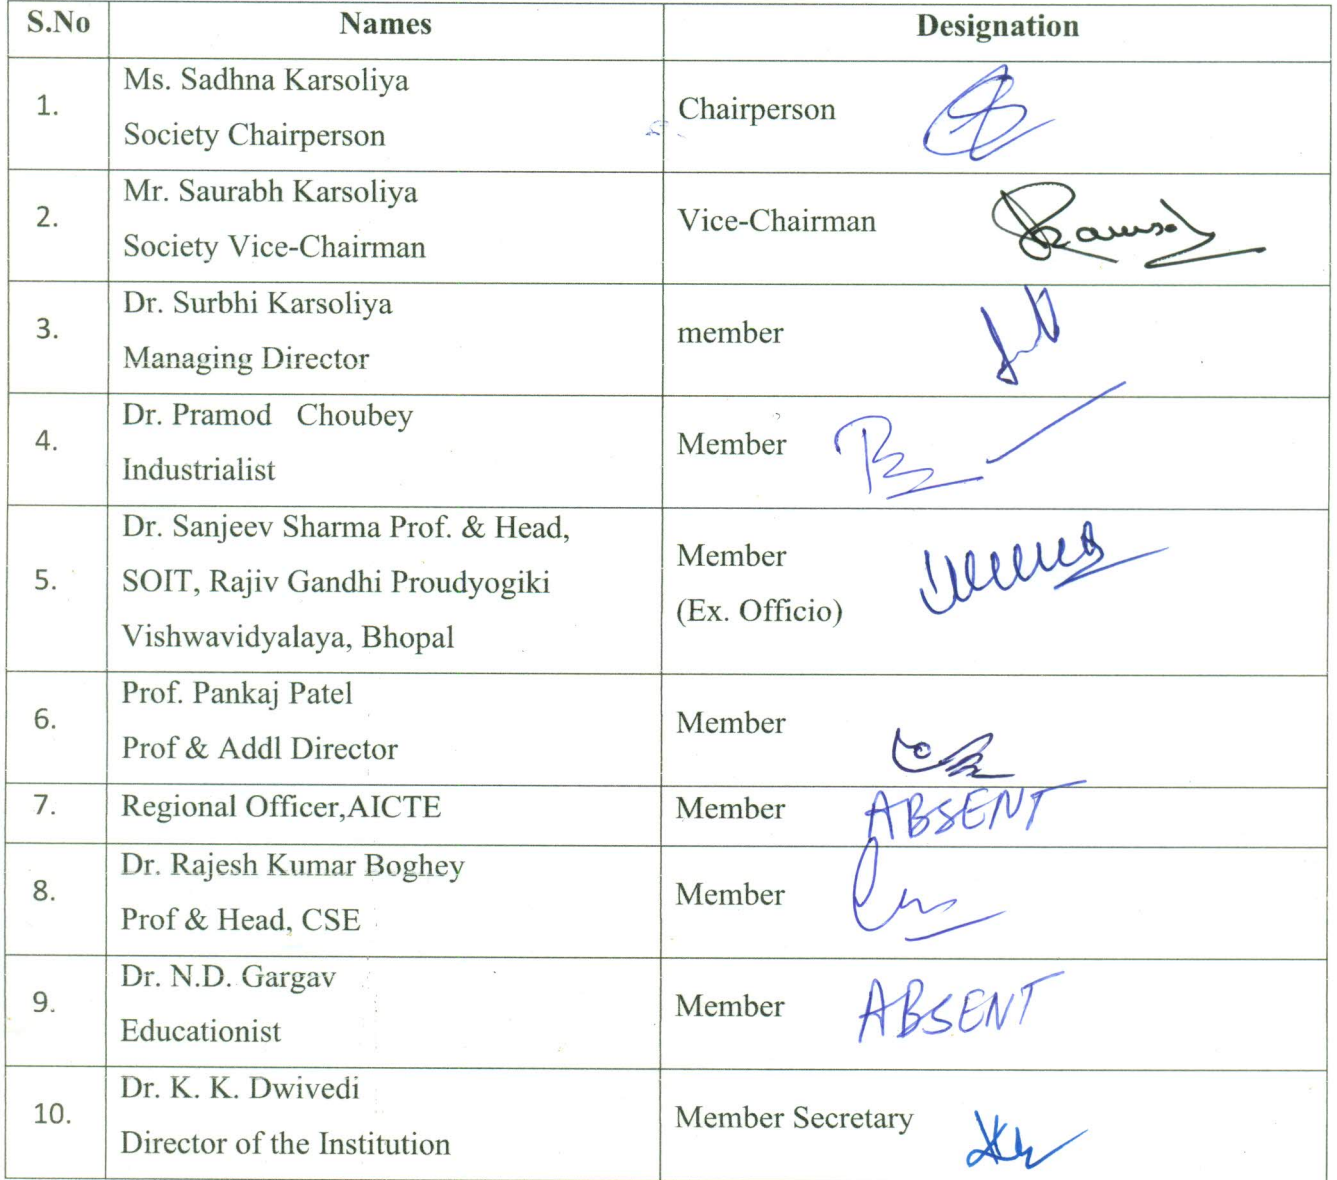 S.No Names Designation
1. Ms. Sadhna Karsoliya
Society Chairperson
Chairperson
2. Mr. Saurabh Karsoliya
Society Vice-Chairman
Vice-Chairman
3. Dr. Surbhi Karsoliya
Managing Director
member
4. Dr. Pramod Choubey
Industrialist
Member
5. Dr. Sanjeev Sharma Prof. & Head,
SOIT, Rajiv Gandhi Proudyogiki
Vishwavidyalaya, Bhopal
Member
(Ex. Officio)
6. Prof. Pankaj Patel
Prof & Addl Director
Member
7. Regional Officer,AICTE
Member ABSENT
8. Dr. Rajesh Kumar Boghey
Prof & Head, CSE
Member
9. Dr. N.D. Gargav
Educationist
Member ABSENT
10. Dr. K. K. Dwivedi
Director of the Institution
Member Secretary